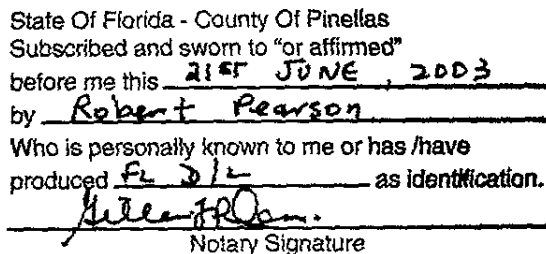 State Of Florida - County Of Pinellas
Subscribed and sworn to "or affirmed"
before me this 21st JUNE, 2003
by Robert Pearson
Who is personally known to me or has /have
produced FL D/L as identification.
Notary Signature